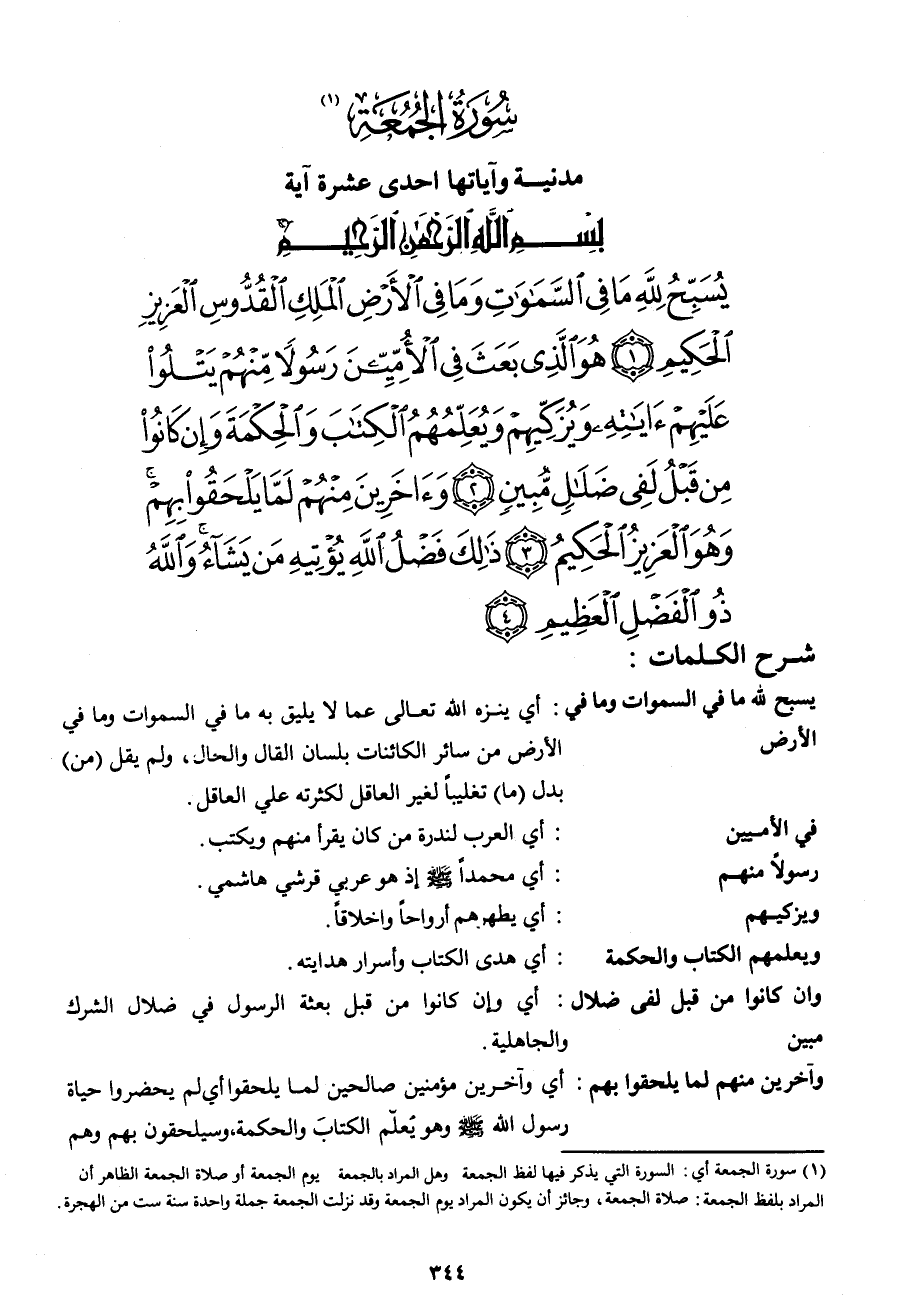 سُورَةُ الجُمُعَةِ (١)
مدنيـة وآياتها احدى عشرة آية
بِسْمِ اللَّهِ الرَّحْمَٰنِ الرَّحِيمِ
يُسَبِّحُ لِلَّهِ مَا فِى ٱلسَّمَٰوَٰتِ وَمَا فِى ٱلْأَرْضِ ٱلْمَلِكِ ٱلْقُدُّوسِ ٱلْعَزِيزِ
ٱلْحَكِيمِ ١ هُوَ ٱلَّذِى بَعَثَ فِى ٱلْأُمِّيِّـۧنَ رَسُولًا مِّنْهُمْ يَتْلُوا۟
عَلَيْهِمْ ءَايَٰتِهِۦ وَيُزَكِّيهِمْ وَيُعَلِّمُهُمُ ٱلْكِتَٰبَ وَٱلْحِكْمَةَ وَإِن كَانُوا۟
مِن قَبْلُ لَفِى ضَلَٰلٍ مُّبِينٍ ٢ وَءَاخَرِينَ مِنْهُمْ لَمَّا يَلْحَقُوا۟ بِهِمْ ۚ
وَهُوَ ٱلْعَزِيزُ ٱلْحَكِيمُ ٣ ذَٰلِكَ فَضْلُ ٱللَّهِ يُؤْتِيهِ مَن يَشَآءُ ۚ وَٱللَّهُ
ذُو ٱلْفَضْلِ ٱلْعَظِيمِ ٤
شـرح الكـلمات :
يسبح لله ما في السموات وما في : أي ينـزه الله تعـالى عما لا يليق به ما في السموات وما في
الأرض الأرض من سائر الكائنات بلسان القال والحال، ولم يقل (من)
بدل (ما) تغليباً لغير العاقل لكثرته علي العاقل.
في الأمـيين : أي العرب لندرة من كان يقرأ منهم ويكتب.
رسولاً منهـم : أي محمداً ﷺ إذ هو عربي قرشي هاشمي.
ويزكيـهم : أي يطهرهم أرواحاً واخلاقاً.
ويعلمهم الكتاب والحكمة : أي هدى الكتاب وأسرار هدايته.
وان كانوا من قبل لفى ضلال : أي وإن كانوا من قبل بعثة الرسول في ضلال الشرك
مبين والجاهلية.
وآخرين منهم لما يلحقوا بهم : أي وآخـرين مؤمنين صالحين لمـا يلحقوا أي لم يحضروا حياة
رسول الله ﷺ وهو يُعلّم الكتابَ والحكمة، وسيلحقون بهم وهم
(١) سورة الجمعة أي: السورة التي يذكر فيها لفظ الجمعة وهل المراد بالجمعة يوم الجمعة أو صلاة الجمعة الظاهر أن
المراد بلفظ الجمعة: صلاة الجمعة، وجائز أن يكون المراد يوم الجمعة وقد نزلت الجمعة جملة واحدة سنة ست من الهجرة.
٣٤٤